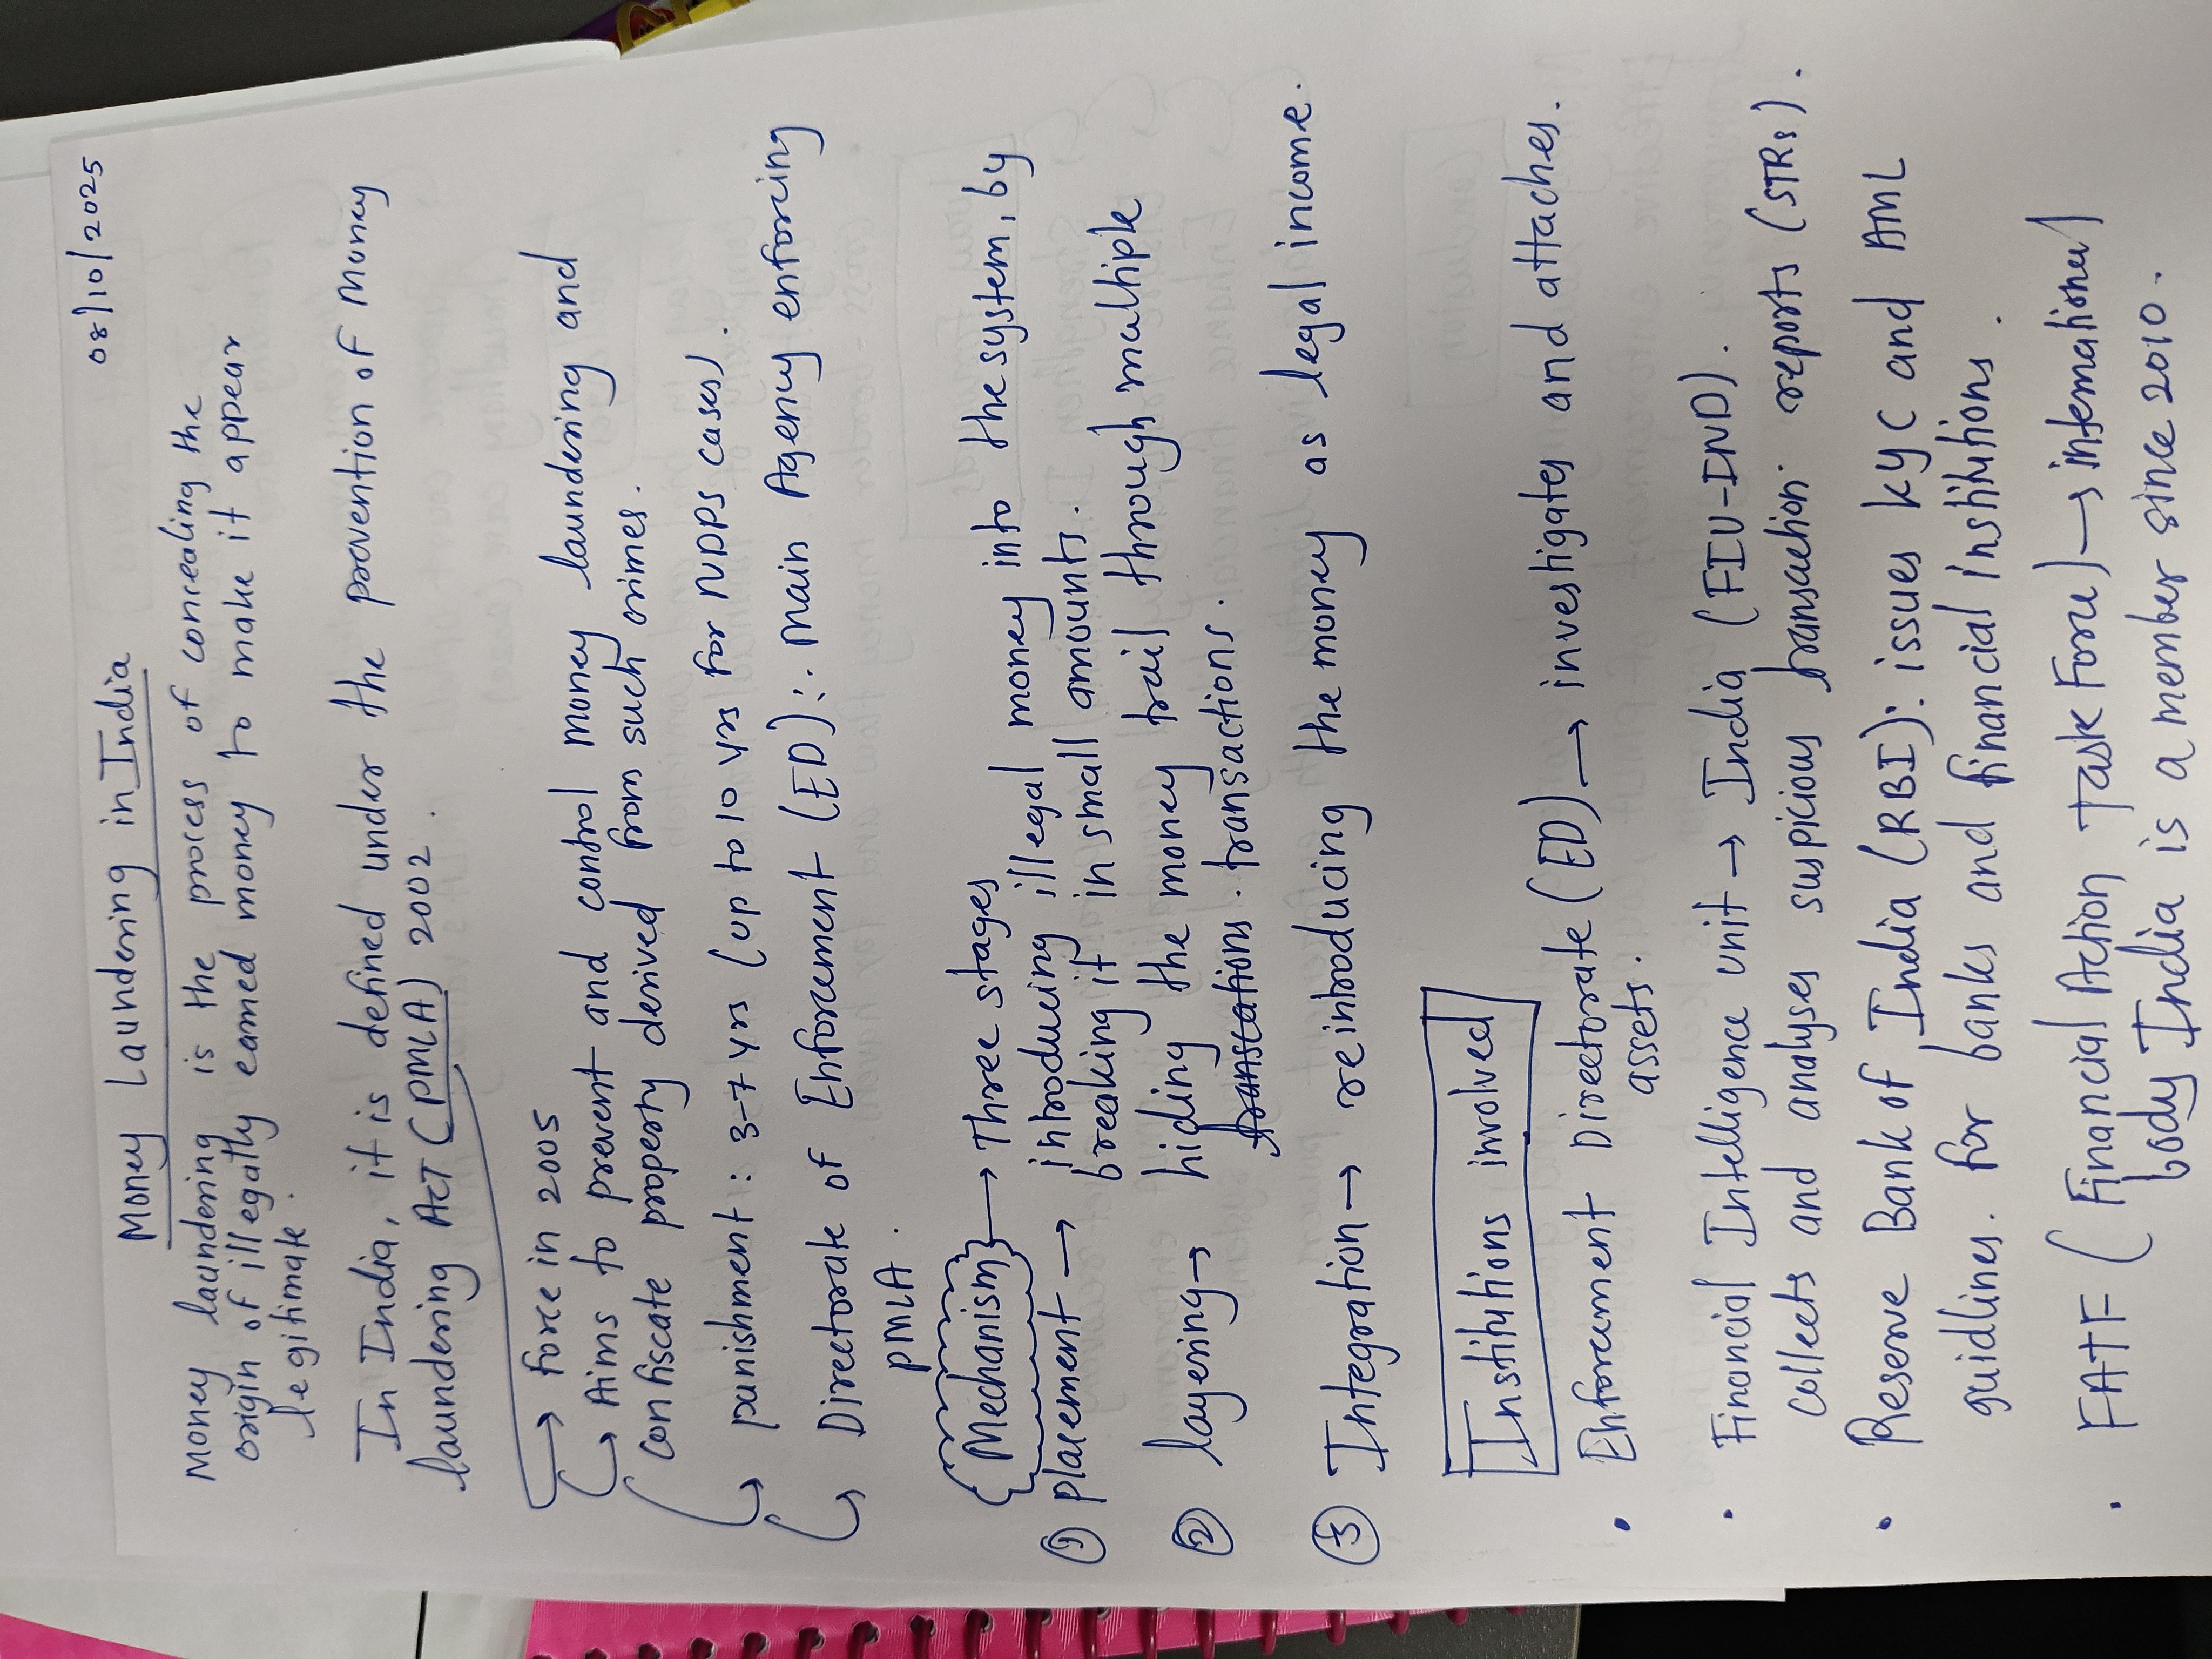 08/10/2025
Money Laundering in India
Money laundering is the process of concealing the
origin of illegally earned money to make it appear
legitimate.
In India, it is defined under the prevention of Money
laundering Act (PMLA) 2002.
→ force in 2005
↳ Aims to prevent and control money laundering and
confiscate property derived from such crimes.
↳ punishment : 3-7 yrs (up to 10 yrs for NDPS cases).
↳ Directorate of Enforcement (ED): Main Agency enforcing
PMLA.
{Mechanism} → Three stages
① placement → introducing illegal money into the system, by
breaking it in small amounts.
② layering → hiding the money trail through multiple
transactions.
③ Integration → reintroducing the money as legal income.
Institutions involved
• Enforcument Directorate (ED) → investigates and attaches.
assets.
• Financial Intelligence unit → India (FIU-IND).
collects and analyses suspicious transaction reports (STRs).
• Reserve Bank of India (RBI): issues KYC and AML
guidlines. for banks and financial institutions.
• FATF (Financial Action Task Force) → international
body India is a member since 2010.